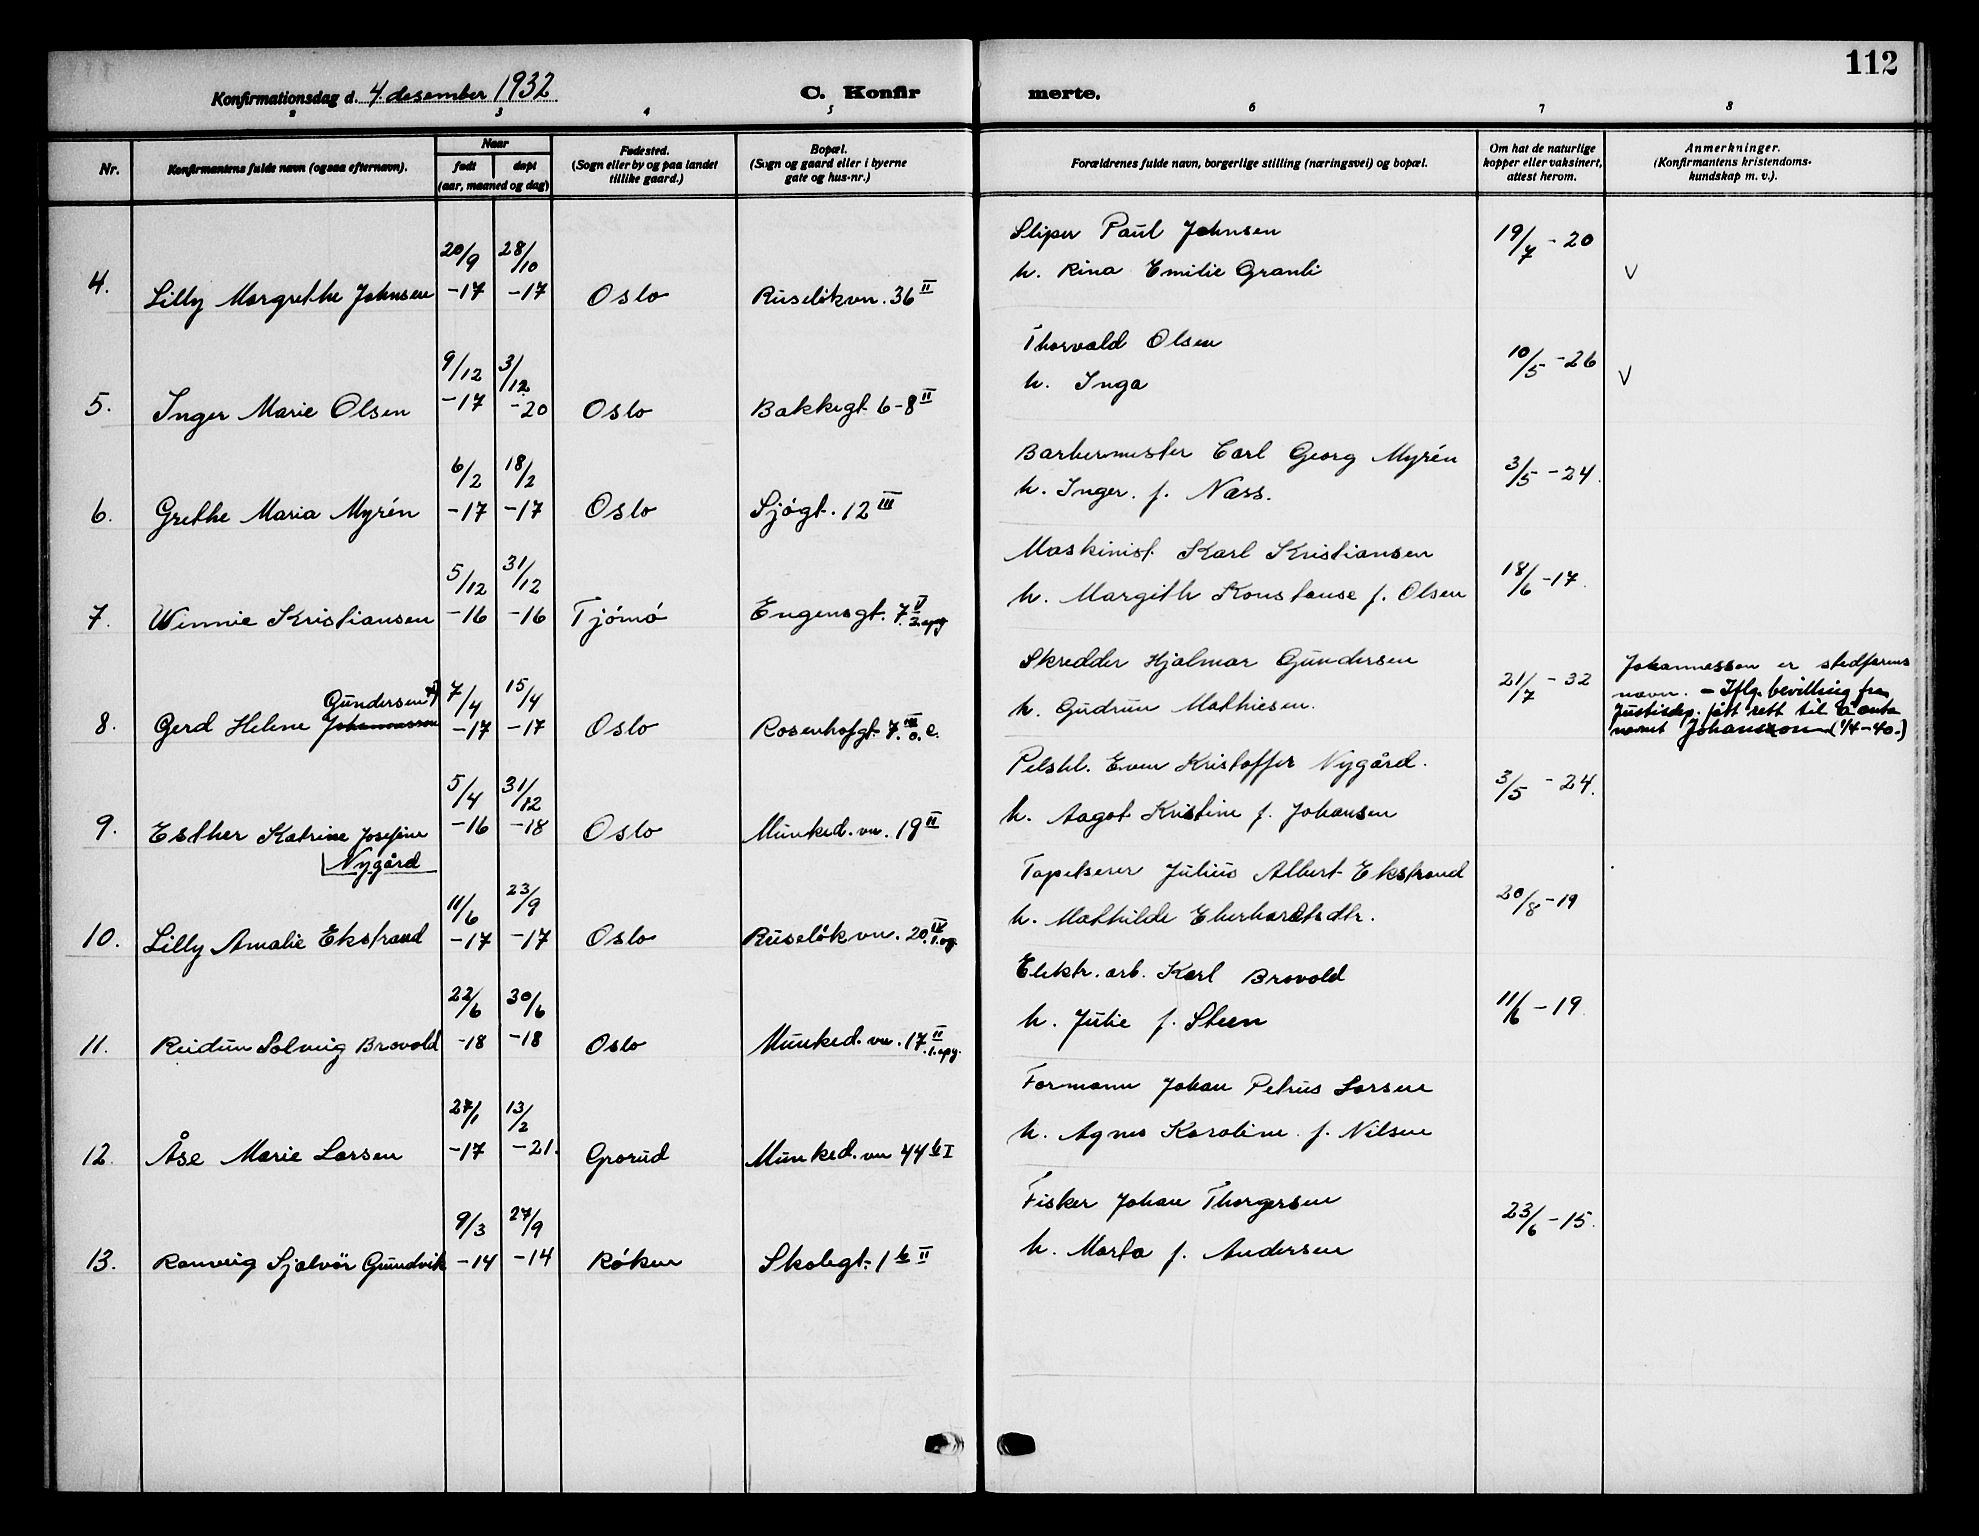 112
Konfirmationsdag d. 4. desember 1932
C. Konfir
merte.
2 3 4 5 6 7 8
Nr.
Konfirmantens fulde navn (ogsaa efternavn).
Naar
født
døpt
(aar, maaned og dag)
Fødested.
(Sogn eller by og paa landet
tillike gaard.)
Bopæl.
(Sogn og gaard eller i byerne
gate og hus-nr.)
Forældrenes fulde navn, borgerlige stilling (næringsvei) og bopæl.
Om hat de naturlige
kopper eller vaksinert,
attest herom.
Anmerkninger.
(Konfirmantens kristendoms-
kundskap m. v.).
20/9 28/10 Sliper Paul Johnsen 19/7 - 20
4. Lilly Margrethe Johnsen -17 -17 Oslo Ruseløkvn. 36 II h. Rina Emilie Granli V
9/12 3/12 Thorvald Olsen 10/5 - 26
5. Inger Marie Olsen -17 -20 Oslo Bakkegt. 6-8 II h. Inga V
6/2 18/2 Barbermester Carl Georg Myrén 3/5 - 24.
6. Grethe Maria Myrén -17 -17 Oslo Sjøgt. 12 III h. Inger. f. Næss.
5/12 31/12 Maskinist Karl Kristiansen 18/6 - 17.
7. Winnie Kristiansen -16 -16 Tjømø Engensgt. 7. V 2. opg h. Margith Konstanse f. Olsen
Gundersen 7/4 15/4 Skredder Hjalmar Gundersen 21/7 - 32
8. Gerd Helene Johannesson -17 -17 Oslo Rosenhofgt. 7. III o. C. h. Gudrun Mathiesen.
Johannesson er stedfarens
navn. - Iflg. bevilling fra
Justisdep. fått rett til å anta
navnet Johansson (1/4-40.)
5/4 31/12 Pelshl. Even Kristoffer Nygård. 3/5 - 24.
9. Esther Katrine Josefine -16 -18 Oslo Munked. vn. 19 II h. Aagot Kristine f. Johansen
Nygård
11/6 23/9 Tapetserer Julius Albert Ekstrand 20/8 - 19
10. Lilly Amalie Ekstrand -17 -17 Oslo Ruseløkvn. 20. IV 1. og. h. Mathilde Eberhardtsdtr.
22/6 30/6 Elektr. arb. Karl Brovold 11/6 - 19.
11. Reidun Solveig Brovold -18 -18 Oslo Munked. vn. 17 II 1. opg. h. Julie f. Steen
27/1 13/2 Formann Johan Petrus Larsen
12. Åse Marie Larsen -17 -21. Grorud Munked. vn 44 b I h. Agnes Karoline. f. Nilsen
9/3 27/9 Fisker Johan Thorgersen 23/6 - 15.
13. Ranveig Sjalvör Gundvik -14 -14 Røken Skolegt. 1 b II h. Marta f. Andersen